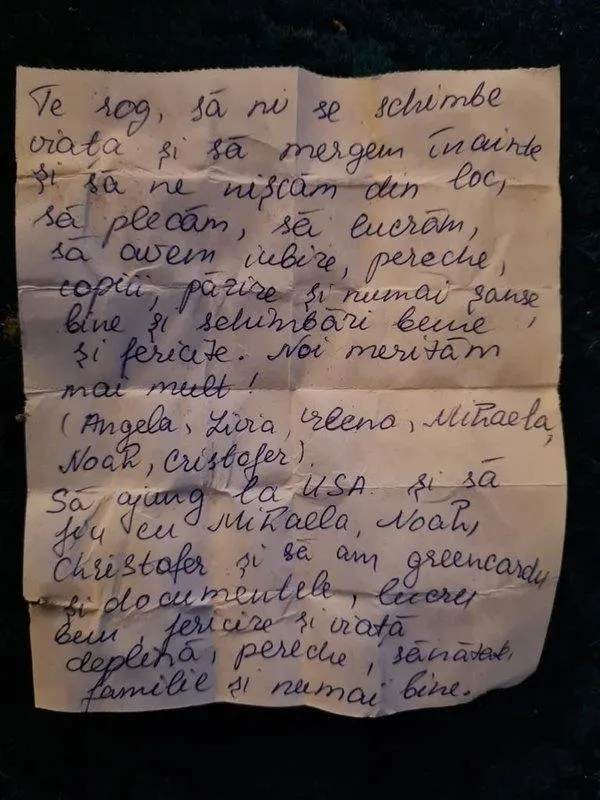 Te rog, să ni se schimbe
viața și să mergem înainte
și să ne nișcăm din loc,
să plecăm, să lucrăm,
să avem iubire, pereche,
copiii, și numai șanse,
bine și schimbări bene
și fericite. Noi merităm
mai mult!
(Angela, Livia, Mihaela,
Noah, Cristofer).
Să ajung la USA. și să
fiu cu Mihaela, Noah,
Christofer și să am greencardu
și documentele, lucru
ben, fericire și viață
deplină, pereche, sănătate,
familie și numai bine.